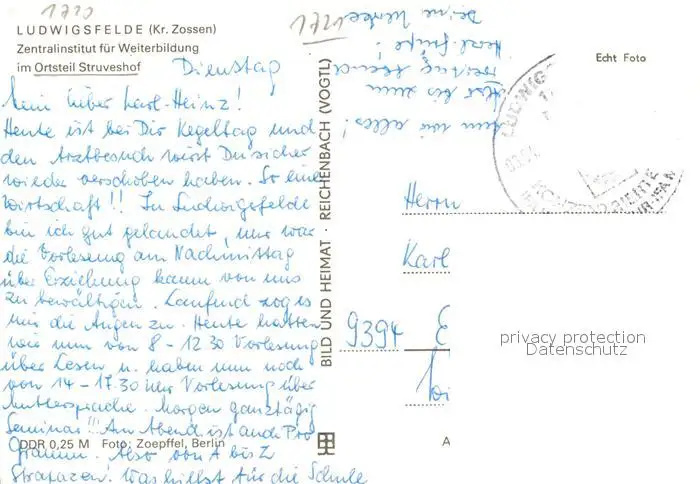 1720
1721
LUDWIGSFELDE (Kr. Zossen)
Zentralinstitut für Weiterbildung
im Ortsteil Struveshof
Echt Foto
Dienstag
Mein lieber Karl-Heinz!
Heute ist bei Dir Kegeltag und
den Arztbesuch wirst Du sicher
wieder verschoben haben. So eine
Wirtschaft!! In Ludwigsfelde
bin ich gut gelandet, nur war
die Vorlesung am Nachmittag
über Erziehung kaum von uns
zu bewältigen. Laufend zog es
mir die Augen zu. Heute hatten
wir nun von 8 - 12.30 Vorlesung
über Lesen u. haben nun noch
von 14 - 17.30 Uhr Vorlesung über
Muttersprache. Morgen ganztägig
Seminar!!! Am Abend ist auch Pro
gramm. Also von A bis Z
Strapazen! Was hilfst für die Schule
alles!
bis zum
Deine
DDR 0,25 M Foto: Zoepffel, Berlin
BILD UND HEIMAT · REICHENBACH (VOGTL)
LUDWIG
Herrn
Karl
9394 E
A
privacy protection
Datenschutz